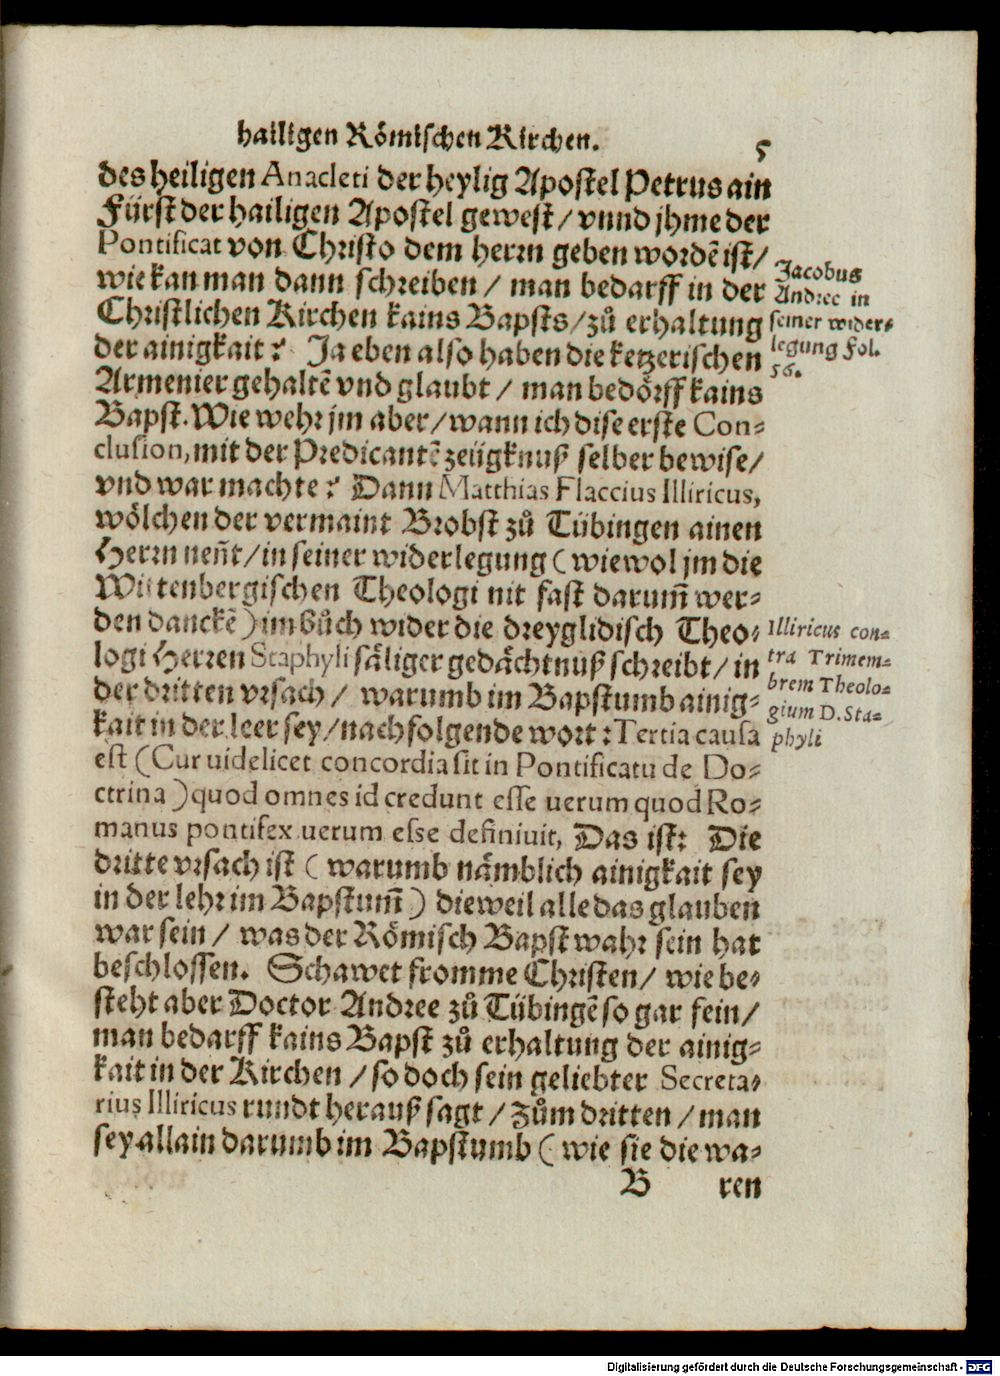 hailigen Römischen Kirchen. 5
des heiligen Anacleti der heylig Apostel Petrus ain
Fürst der hailigen Apostel gewest / vnnd jhme der
Pontificat von Christo dem herrn geben wordē ist /
wie kan man dann schreiben / man bedarff in der
Christlichen Kirchen kains Bapsts / zů erhaltung
der ainigkait? Ja eben also haben die ketzerischen
Armenier gehaltē vnd glaubt / man bedörff kains
Bapst. Wie wehr jm aber / wann ich dise erste Con-
clusion, mit der Predicantē zeügknuß selber bewise /
vnd war machte? Dann Matthias Flaccius Illiricus,
wölchen der vermaint Brobst zů Tübingen ainen
Herrn neñt / in seiner widerlegung (wiewol jm die
Wittenbergischen Theologi nit fast darum̃ wer-
den danckē) im bůch wider die dreyglidisch Theo-
logi Herren Staphyli säliger gedächtnuß schreibt / in
der dritten vrsach / warumb im Bapstumb ainig-
kait in der leer sey / nachfolgende wort: Tertia causa
est (Cur uidelicet concordia sit in Pontificatu de Do-
ctrina) quod omnes id credunt esse uerum quod Ro-
manus pontifex uerum esse definiuit, Das ist: Die
dritte vrsach ist (warumb nämblich ainigkait sey
in der lehr im Bapstum̃) dieweil alle das glauben
war sein / was der Römisch Bapst wahr sein hat
beschlossen. Schawet fromme Christen / wie be-
steht aber Doctor Andree zů Tübingē so gar fein /
man bedarff kains Bapst zů erhaltung der ainig-
kait in der Kirchen / so doch sein geliebter Secreta-
rius Illiricus rundt herauß sagt / Zům dritten / man
sey allain darumb im Bapstumb (wie sie die wa-
B ren
Jacobus
Andree in
seiner wider-
legung Fol.
56.
Illiricus con-
tra Trimem-
brem Theolo-
gium D. Sta-
phyli
Digitalisierung gefördert durch die Deutsche Forschungsgemeinschaft - DFG